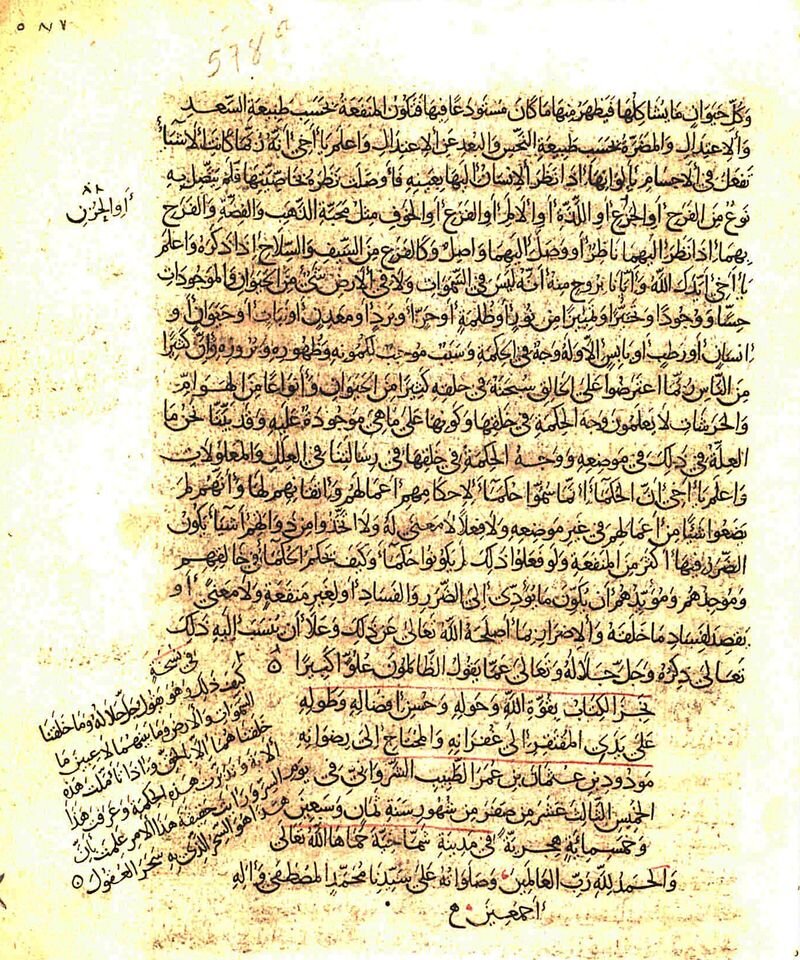 ٥٨٧
578
وكل حيوان ما يشاكلها فيظهر منها ما كان مستودعا فيها فتكون المنفعة بحسب طبيعة السعد
والاعتدال والمضرة بحسب طبيعة النحس والبعد عن الاعتدال واعلم يا أخي أنه ربما كانت الأشياء
تفعل في الأجسام بألوانها إذا نظر الإنسان إليها بعينه فأوصلت نظره بخاصيتها قلم يتصل به
نوع من الفرح أو الجزع أو اللذة أو الألم أو الفزع أو الخوف مثل محبة الذهب والفضة والفرح
بهما إذا نظر إليهما ناظر أو وصل إليهما واصل وكالفزع من السيف والسلاح إذا ذكره واعلم
يا أخي أيدك الله وإيانا بروح منه أنه ليس في السموات ولا في الأرض شيء من الحيوان والموجودات
حسا ووجودا وخبرا من نور أو ظلمة أو حر أو برد أو معدن أو نبات أو حيوان أو
إنسان أو رطب أو يابس إلا وله وجه في الحكمة وسبب موجب لكمونه وظهوره وبروزه وإن كثيرا
من الناس ربما اعترضوا على الخالق سبحنه في خلقه كثيرا من الحيوان وأنواعا من الهوام
والحرشات لا يعلمون وجه الحكمة في خلقها وكونها على ما هي موجودة عليه وقد بينا نحن ما
العلة في ذلك في موضعه ووجه الحكمة في خلقها في رسالتنا في العلل والمعلولات
واعلم يا أخي أن الحكماء إنما سموا حكماء لإحكامهم أعمالهم وإتقانهم لها وأنهم لم
يضعوا شيئا من أعمالهم في غير موضعه ولا فعلا لا معنى له ولا اتخذوا من ذواتهم أشياء يكون
الضرر فيها أكثر من المنفعة ولو فعلوا ذلك لم يكونوا حكماء وكيف تحكم الحكماء في خالقهم
وموجدهم ومؤيدهم أن يكون ما يؤدي إلى الضرر والفساد أو لغير منفعة ولا معنى أو
يقصد لفساد ما خلقه والإضرار بما أصلحه الله تعالى عن ذلك وعلا أن ينسب إليه ذلك
تعالى ذكره وجل جلاله وتعالى عما يقول الظالمون علوا كبيرا
نجز الكتاب بقوة الله وحوله وحسن إفضاله وطوله
على يدي المفتقر إلى غفرانه والمحتاج إلى رضوانه
مودود بن عثمان بن عمر الطبيب الشرواني في يوم
الخميس الثالث عشر من صفر من شهور سنة ثمان وسبعين
وخمسمائة هجرية في مدينة شماخية حماها الله تعالى
والحمد لله رب العالمين وصلواته على سيدنا محمد المصطفى وآله
أجمعين
أو الحزن
في نسخة
كيف ذلك وهو يقول جل جلاله وما خلقنا
السموات والأرض وما بينهما لاعبين ما
خلقناهما إلا بالحق وإذا تأملت هذه
الآية وتدبرت هذه الحكمة وعرفت هذا
السر ورأيت حقيقة هذا الأمر علمت بأن
هذا هو السحر الذي به سحر العقول